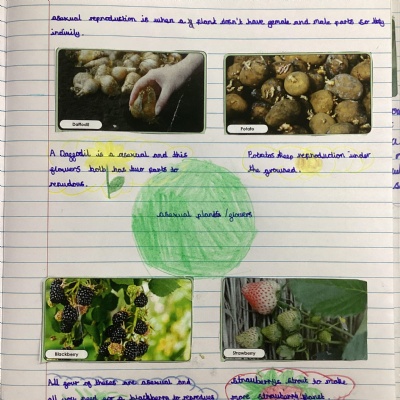 asexual reproduction is when a plant doesn't have female and male parts so they
Daffodil
Potato
A Daffodil is a asexual and this
flowers both has two parts to
Potatos keep reproduction under
the ground.
asexual plants/flowers
Blackberry
Strawberry
All four of theses are asexual and
all you need for a blackberry to reproduce
strawberrys strat to make
more strawberry planet